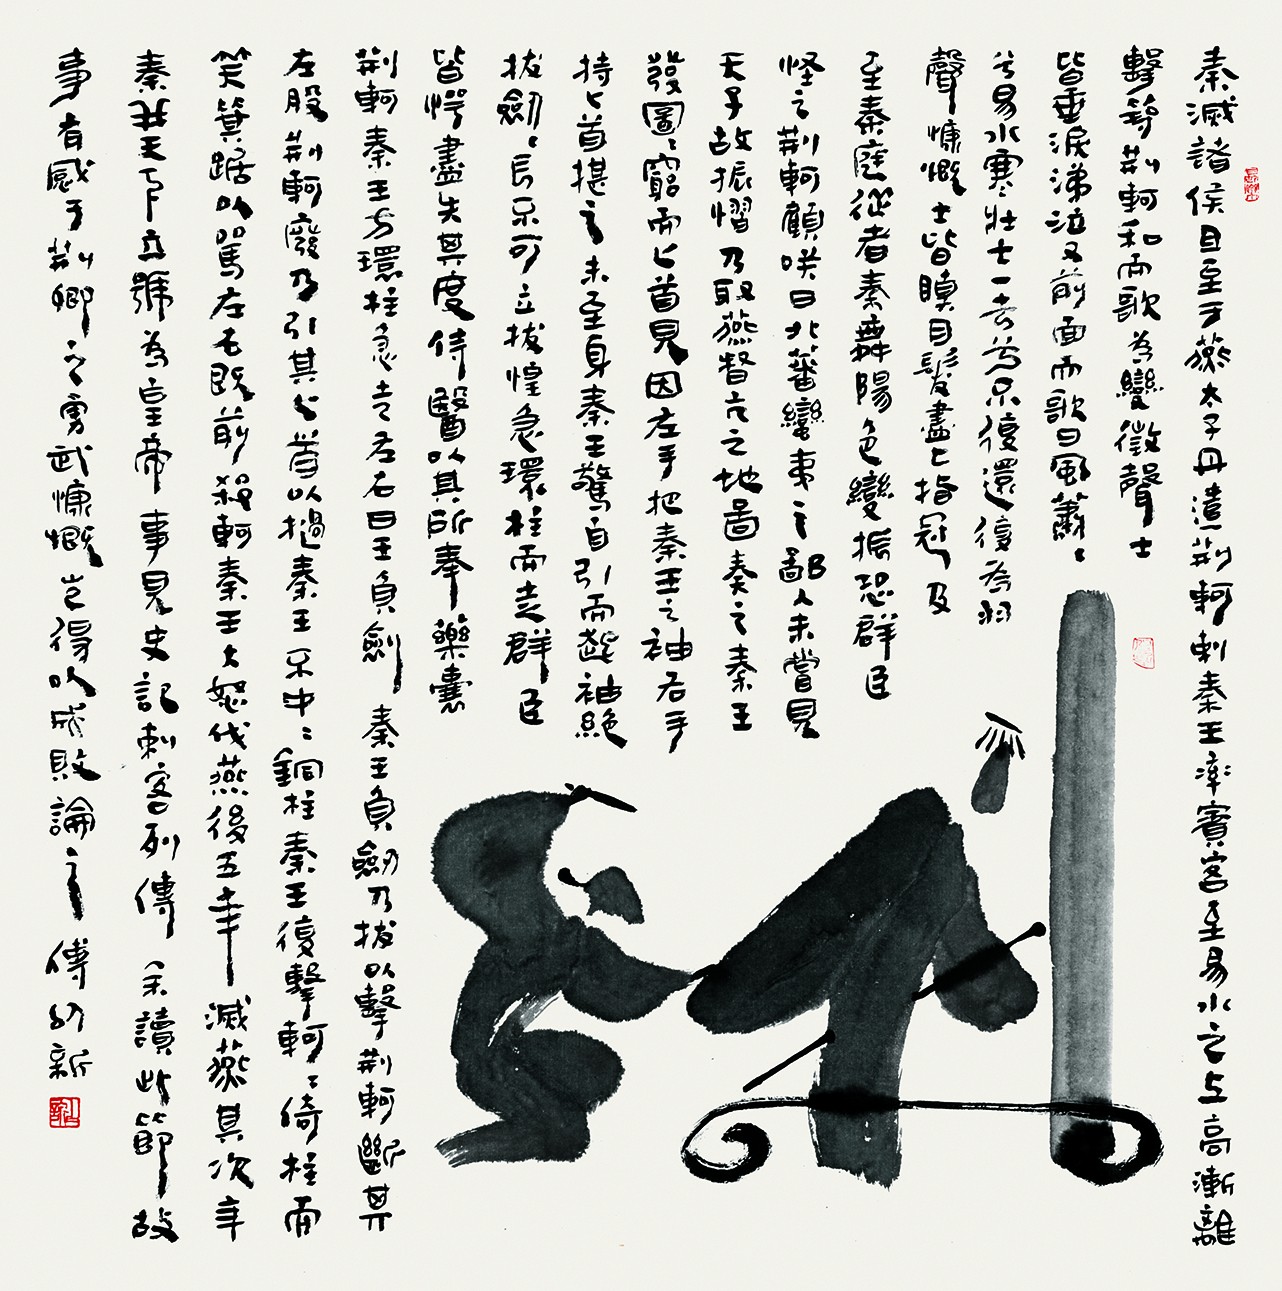 秦滅諸侯且至于燕太子丹遣荆軻刺秦王率賓客至易水之上高漸離
擊筑荆軻和而歌為變徵聲士
皆垂淚涕泣又前面而歌曰風蕭〻
兮易水寒壯士一去兮不復還復為羽
聲慷慨士皆瞋目髮盡上指冠及
至秦庭從者秦舞陽色變振恐群臣
怪之荆軻顧咲曰北蕃蠻夷之鄙人未嘗見
天子故振慴乃取燕督亢之地圖奏之秦王
發圖〻窮而匕首見因左手把秦王之袖右手
持匕首揕之未至身秦王驚自引而起袖絶
拔劍〻長不可立拔惶急環柱而走群臣
皆愕盡失其度侍醫以其所奉藥囊
荆軻秦王方環柱急走左右曰王負劍 秦王負劍乃拔以擊荆軻斷其
左股荆軻廢乃引其匕首以擿秦王不中〻銅柱秦王復擊軻〻倚柱而
笑箕踞以罵左右既前殺軻秦王大怒伐燕後五年滅燕其次年
秦并天下立號為皇帝 事見史記刺客列傳 余讀此節故
事有感于荆卿之勇武慷慨豈得以成敗論之 傅
新